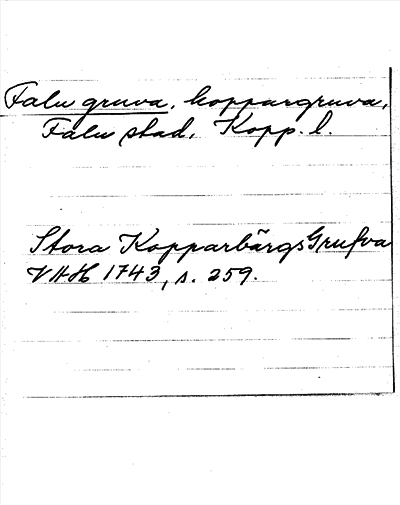 Falu gruva, koppargruva,
Falu stad, Kopp. l.
Stora Kopparbärgs Grufva
VAH 1743, s. 259.